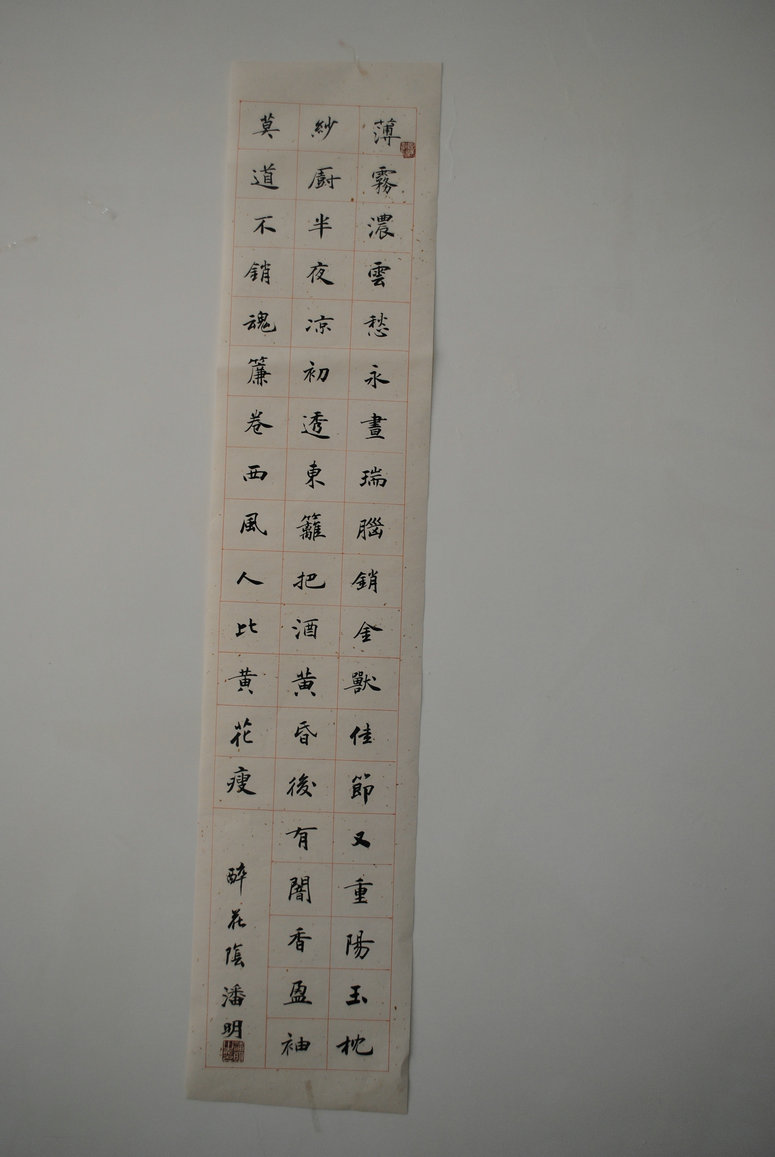 薄霧濃雲愁永晝瑞腦銷金獸佳節又重陽玉枕
紗廚半夜涼初透東籬把酒黃昏後有闇香盈袖
莫道不銷魂簾卷西風人比黃花瘦
醉花陰潘明